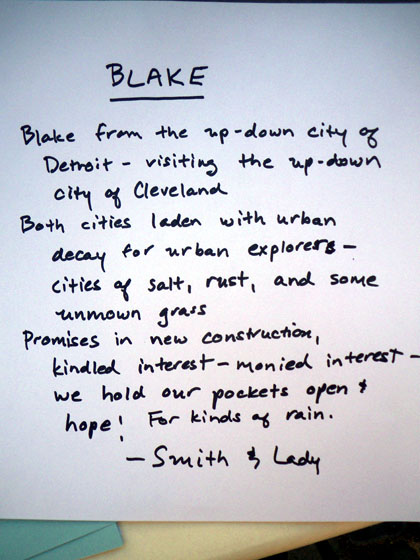 BLAKE
Blake from the up-down city of
Detroit - visiting the up-down
city of Cleveland
Both cities laden with urban
decay for urban explorers -
cities of salt, rust, and some
unmown grass
Promises in new construction,
kindled interest - monied interest -
we hold our pockets open &
hope! For kinds of rain.
- Smith & Lady